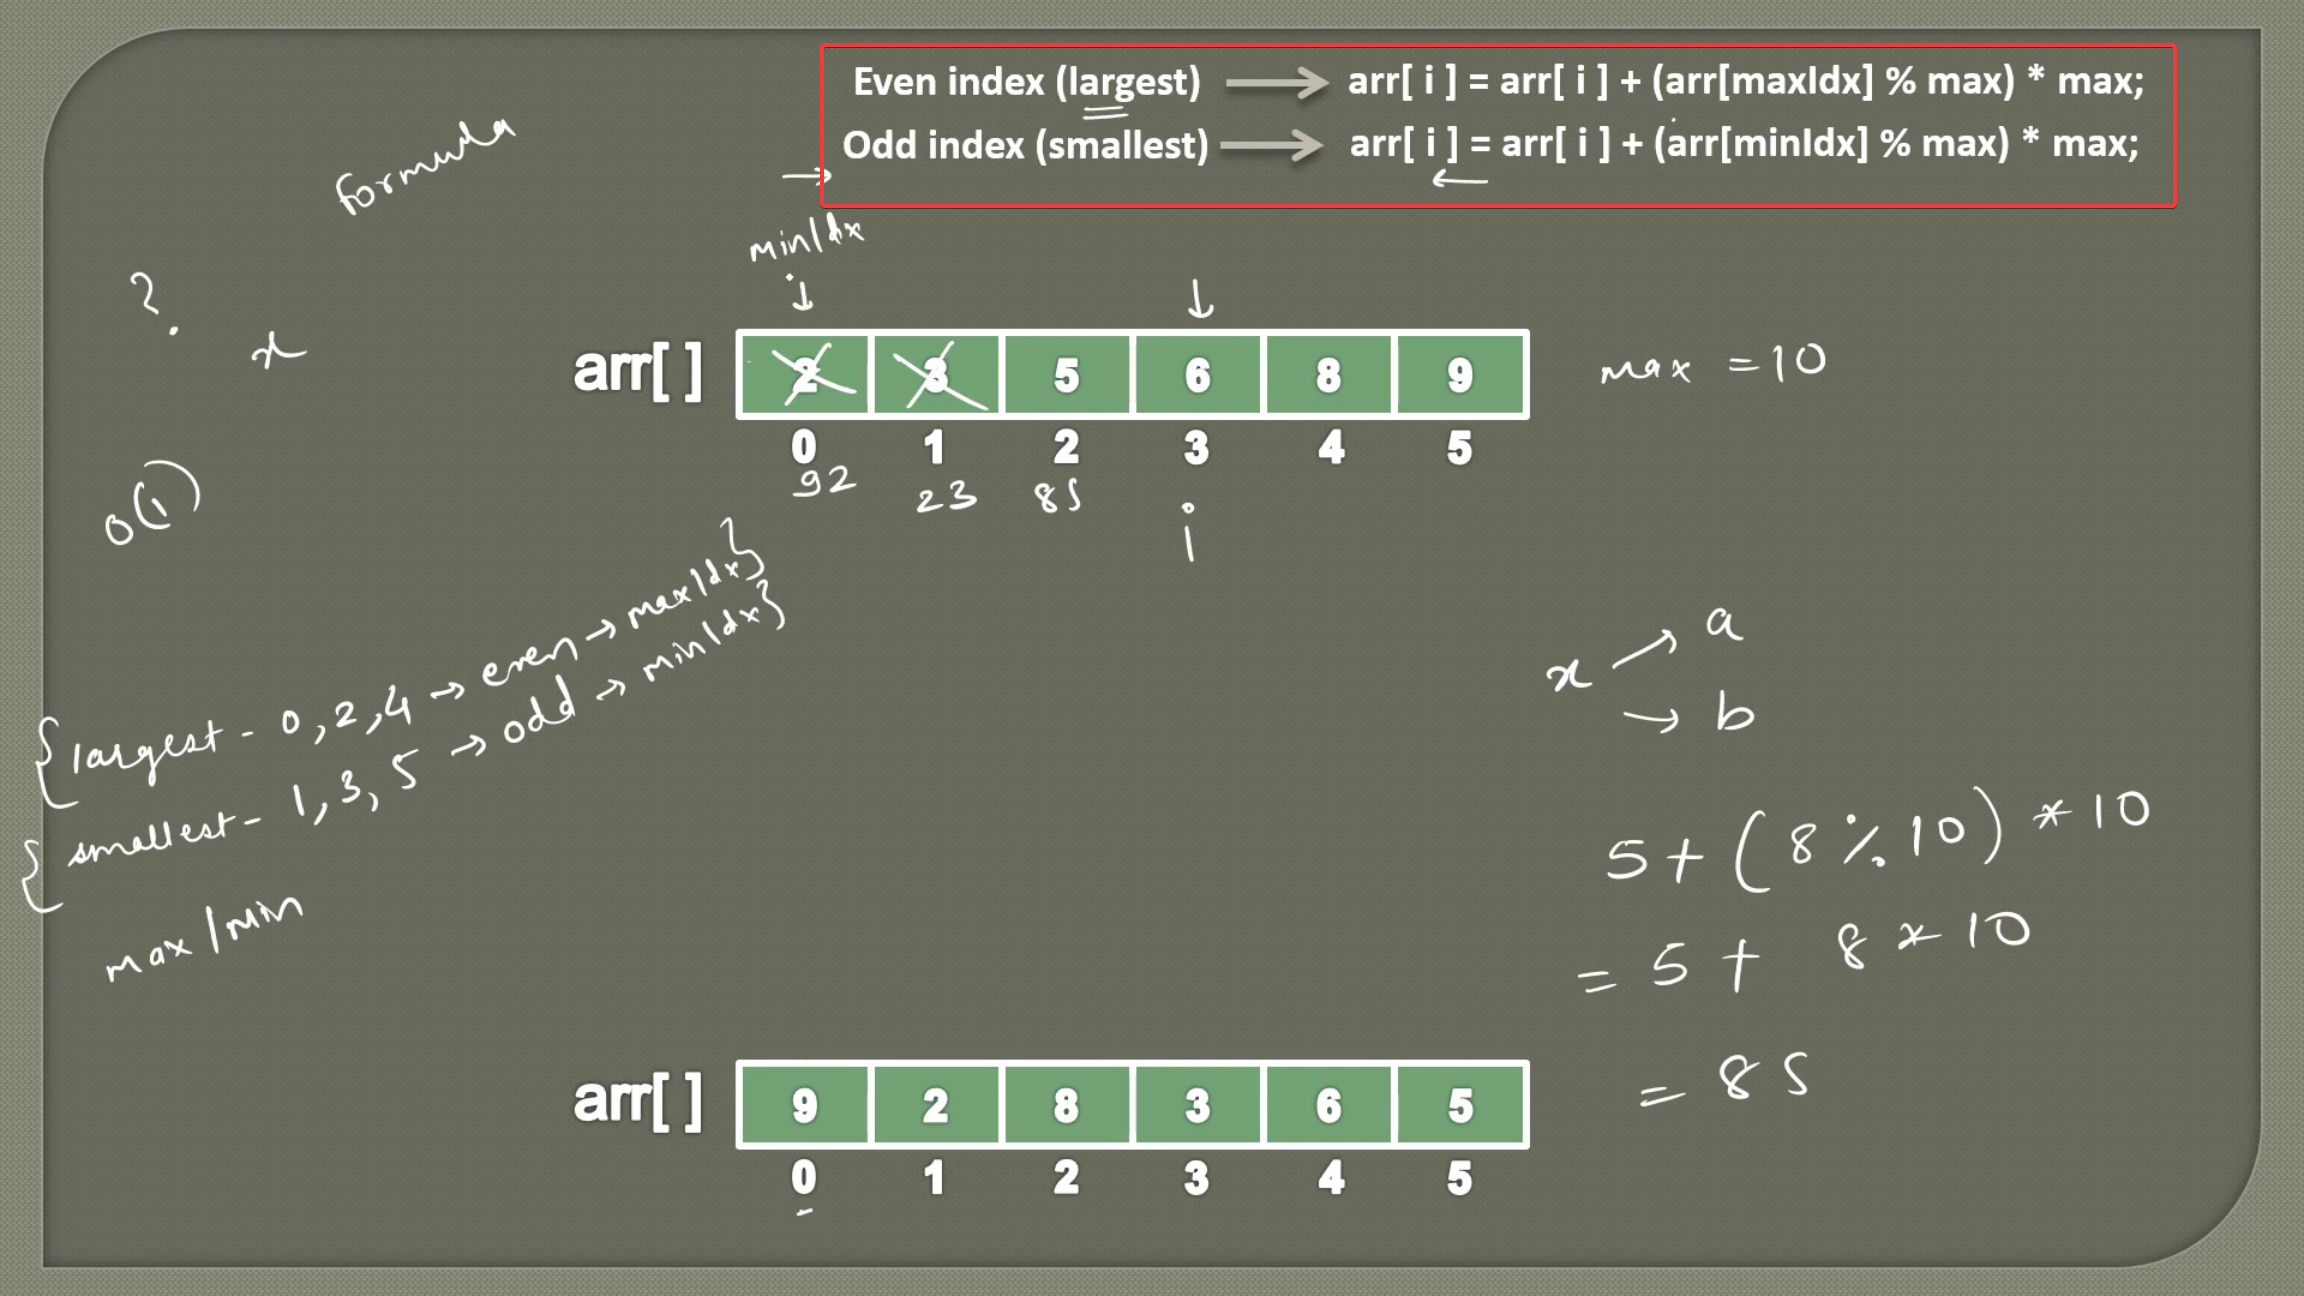 Even index (largest) → arr[ i ] = arr[ i ] + (arr[maxIdx] % max) * max;
Odd index (smallest) → arr[ i ] = arr[ i ] + (arr[minIdx] % max) * max;
formula
→ ←
minIdx
↓ ↓
?
x
arr[ ] 2 3 5 6 8 9
max = 10
0 1 2 3 4 5
92 23 85
i
O(1)
{largest - 0, 2, 4 → even → maxIdx}
{smallest - 1, 3, 5 → odd → minIdx}
max/min
x → a
→ b
5 + (8 % 10) * 10
= 5 + 8 * 10
= 85
arr[ ] 9 2 8 3 6 5
0 1 2 3 4 5